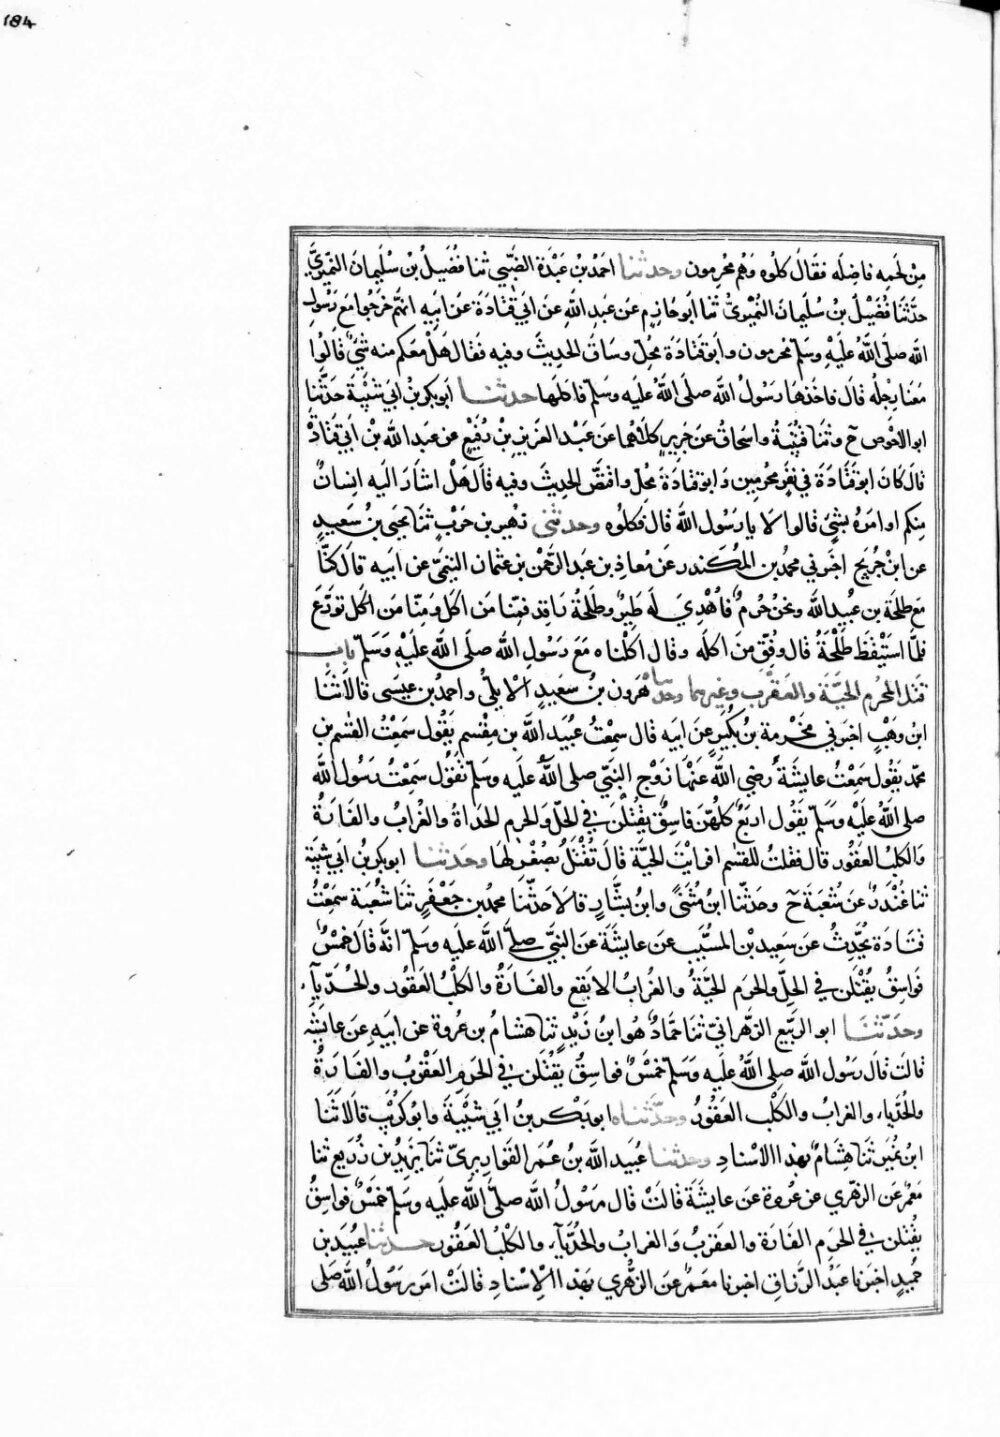 184
مِنْ لحَمِه فاضِلَه فقَالَ كلُوه وَهُم مُحرِمون وحدثنا احمَدُ بن عَبْدَة الضَّبّي ثنا فضَيلُ بْن سُلَيمانَ النّميريُّ
حدَّثنَا فُضَيْلُ بنُ سُلَيمانَ النُمَيْرىُّ ثنا ابوحازِم عَن عَبدِ اللهِ عَن ابَي قتَادَة عَن ابَيه انَّهم خَرجُوا مَعَ رَسُولِ
الله صلّى اللهُ عَليْهِ وسَلمّ مُحرمون وابَوقتادَة مُحِلّ وسَاقَ الحديثَ وفيه فقال هلْ معَكم منه شَئٌ قالُوا
مَعَنا رِجلُه قالَ فاخَذهَا رَسُولُ الله صَلى اللهُ عليه وسَلمّ فاكلَها حدثنا ابوبكرِ بْنُ ابي شَيْبَة حَدّثنا
ابو الاحْوص ح وثنَا قتيبَة واسحَاقُ عَن جَريرٍ كلاهُما عَن عَبْد العَزيزِ بْنِ رُفَيْعٍ عن عَبد الله بْن ابَي قتَادَة
قالَ كانَ ابوقتَادَة في نفَرٍ محُرِمينَ وَابوقتادَة مُحلّ واقتَصّ الحديثَ وفيه قالَ هَلْ اشارَ اليه انِسانٌ
مِنكم او امَرهُ بشَئٍ قالوا لاَ يا رَسُول الله قالَ فكلُوه وحدثنى زهَير بن حَرْب ثنَا يحَيى بنُ سَعيدٍ
عن ابْن جُرَيج اخبرَني محمدُ بن المُنكَدر عَن مُعاذِ بن عَبد الرّحمن بن عثمان التّيميّ عن ابَيه قالَ كنّا
مَع طلحَة بن عُبيدِ الله ونحنُ حُرمٌ فأُهْدِيَ لَه طَيرٌ وطلحَةُ رَاقِد فمِنّا مَن اكلَ وَمِنّا مَن تورَّع
فلمَّا استَيْقظ طَلْحَةُ قال وُفّقَ مَن اكلَه وقال اكلْناه مَعَ رَسُولِ الله صلَى الله عليْهِ وَسَلمّ باب
قتل المحُرِم الحيَّة والعَقْرَب وغيرهما وحدثنا هَرون بنُ سَعيدٍ الاَيلِيُّ واحمدُ بن عيسَى قالاَ ثنا
ابنُ وهْبٍ اخبرَني مخَرَمة بنُ بُكَيرٍ عنَ ابَيه قال سَمِعْتُ عُبيد الله بن مِقْسَم يقُول سَمِعْتُ القسْم بنَ
محمّد يقُول سَمِعْتُ عايشَة رَضي الله عَنْهَا زوْج النبّي صلى الله عَليَه وسَلم تقُول سَمِعْتُ رَسُول الله
صلى اللهُ عليْه وسَلّم يقُول اربَعٌ كلُهنّ فاسِقٌ يقُتَلْنَ في الحِلّ وَالحرم الحَداةُ والغُرابُ والفَارَةُ
والكلبُ العَقُور قال فقلتُ للقسم افرايْت الحيَّة قالَ تُقْتَلُ بصُغْرٍ لهَا وحَدثنا ابوبكر بنُ ابي شيبَة
ثنا غُنْدَرٌ عَن شُعْبَة حَ وحَدثّنا ابنُ مُثَنىًّ وابنُ بشّار قالاَ حَدّثنا محمّدُ بن جَعْفرٍ ثنا شُعْبَة سَمِعْتُ
قتَادَة يحُدِّثُ عَن سَعِيد بْن المسَيّب عَن عايشَة عَن النبّي صلىَّ الله عليَه وسَلم انهَّ قال خمْسٌ
فَواسِقُ يُقْتَلنَ في الحلّ والحرَم الحيَّةُ والغُرابُ الابَقع والفَارَةُ والكلْبُ العَقُور والحُدَيّاَ
وحَدّثنَا ابو الرّبيع الزّهرانيّ ثنَا حَمّادٌ هوُ ابنُ زَيْدٍ ثنا هشامُ بن عُروة عن ابَيه عَن عايشَة
قالَت قالَ رَسُول الله صلى اللهُ عليه وَسَلم خمسٌ فواسِقُ يقُتَلن في الحرَم العَقْربُ والفَارَةُ
والحُدَيا والغرابُ والكلْب العَقُورُ وحدَّثناه ابوبكر بنُ ابي شيْبَة وابوكريْب قالاَ ثَنا
ابن نمُيرٍ ثنا هِشامٌ بهذا الاسْنادِ وحدثنا عُبيد الله بنُ عُمَرَ القَوَاريريّ ثنا يزيدُ بن زُرَيع ثنا
مَعْمرٌ عَن الزهري عن عُروة عَن عايشَة قالتْ قال رسُولُ الله صلى الله عَليه وسَلم خَمسٌ فواسِقُ
يُقتَلنَ في الحرَم الفَارَة والعقربُ وَالغرابُ والحُدَيّا والكلْبُ العَقُور حدثنا عبُيدُ بن
حُميدٍ اخبَرنا عبَدُ الرّزاقِ اخبرنا مَعمَرٌ عَن الزُهري بهَذا الاِسْنادِ قالتْ امَر رسُولُ الله صَلى